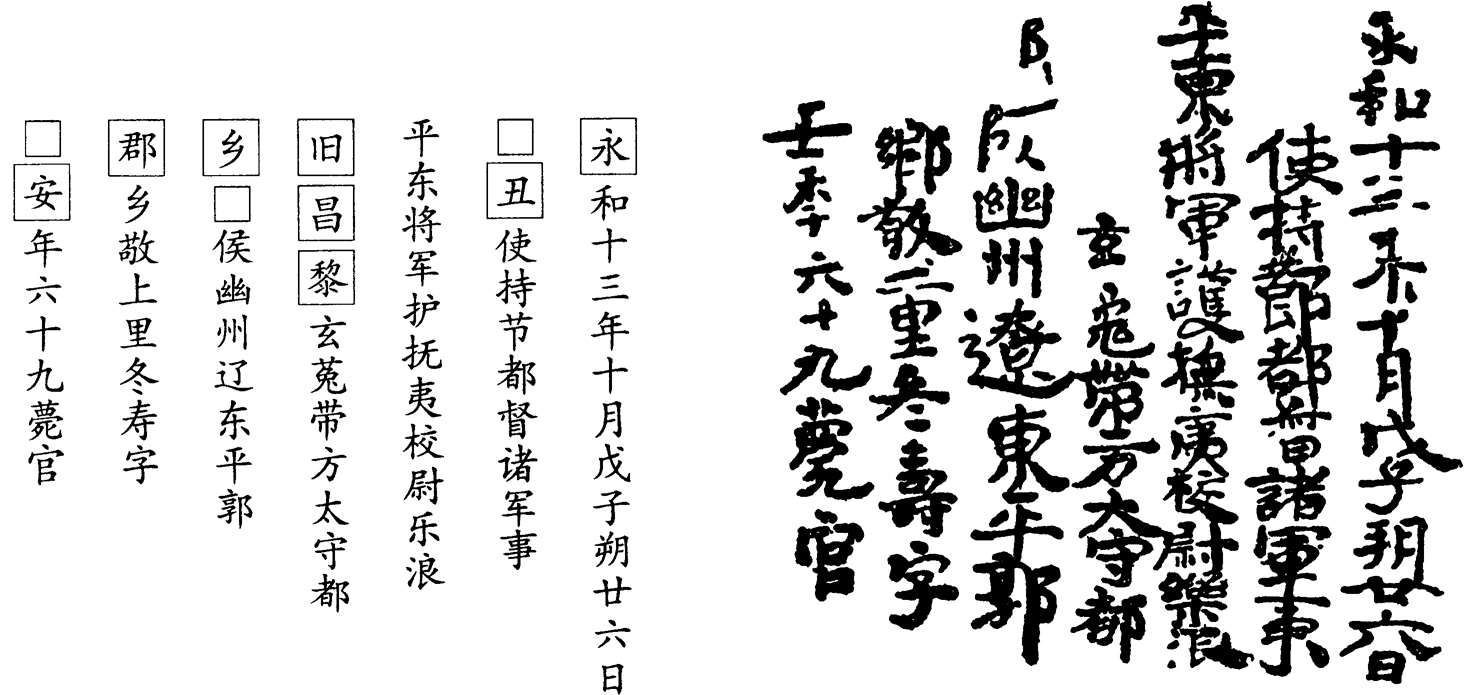 永和十三年十月戊子朔廿六日
使持節都督諸軍事
平東將軍護撫夷校尉樂浪
玄菟帶方大守都
幽州遼東平郭
鄉敬上里冬壽字
年六十九薨官
永和十三年十月戊子朔廿六日
□丑使持节都督诸军事
平东将军护抚夷校尉乐浪
旧昌黎玄菟带方太守都
乡□侯幽州辽东平郭
郡乡敬上里冬寿字
□安年六十九薨官